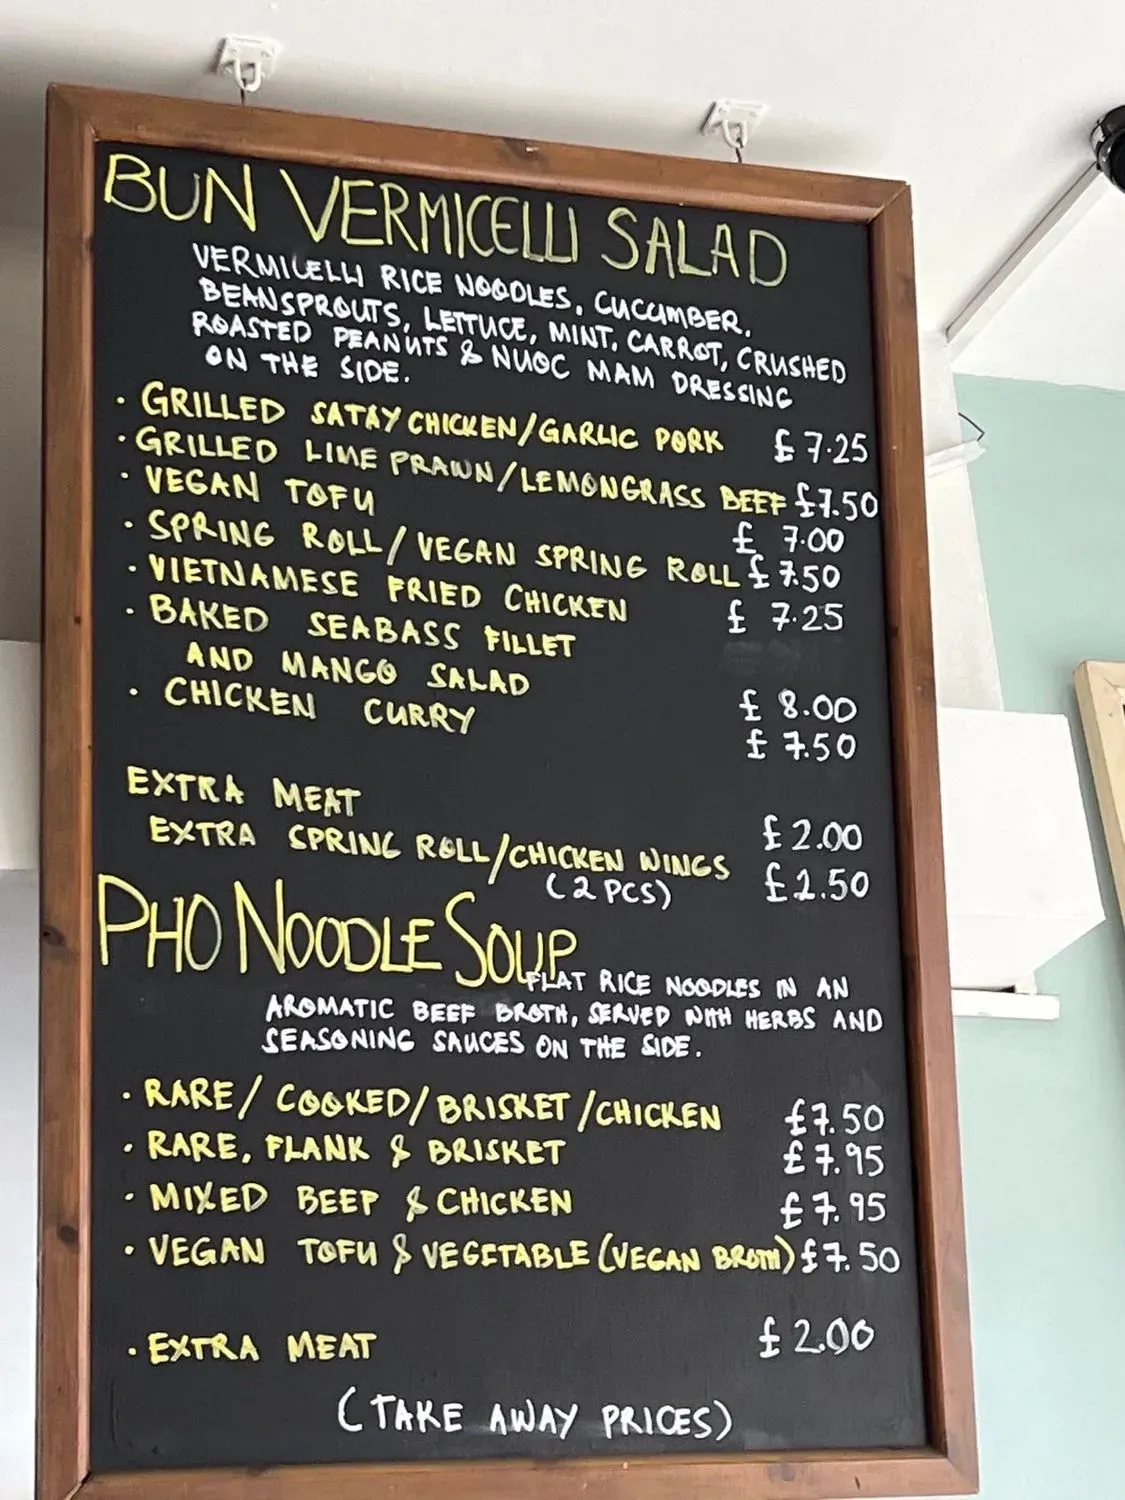 BUN VERMICELLI SALAD
VERMICELLI RICE NOODLES, CUCUMBER,
BEANSPROUTS, LETTUCE, MINT, CARROT, CRUSHED
ROASTED PEANUTS & NUOC MAM DRESSING
ON THE SIDE.
· GRILLED SATAY CHICKEN/GARLIC PORK £7.25
· GRILLED LIME PRAWN/LEMONGRASS BEEF £7.50
· VEGAN TOFU £ 7.00
· SPRING ROLL/VEGAN SPRING ROLL £7.50
· VIETNAMESE FRIED CHICKEN £ 7.25
· BAKED SEABASS FILLET
AND MANGO SALAD £ 8.00
· CHICKEN CURRY £ 7.50
EXTRA MEAT £2.00
EXTRA SPRING ROLL/CHICKEN WINGS £2.50
(2 PCS)
PHO NOODLE SOUP
FLAT RICE NOODLES IN AN
AROMATIC BEEF BROTH, SERVED WITH HERBS AND
SEASONING SAUCES ON THE SIDE.
· RARE/ COOKED/BRISKET/CHICKEN £7.50
· RARE, FLANK & BRISKET £7.95
· MIXED BEEF & CHICKEN £7.95
· VEGAN TOFU & VEGETABLE (VEGAN BROTH) £7.50
· EXTRA MEAT £2.00
(TAKE AWAY PRICES)